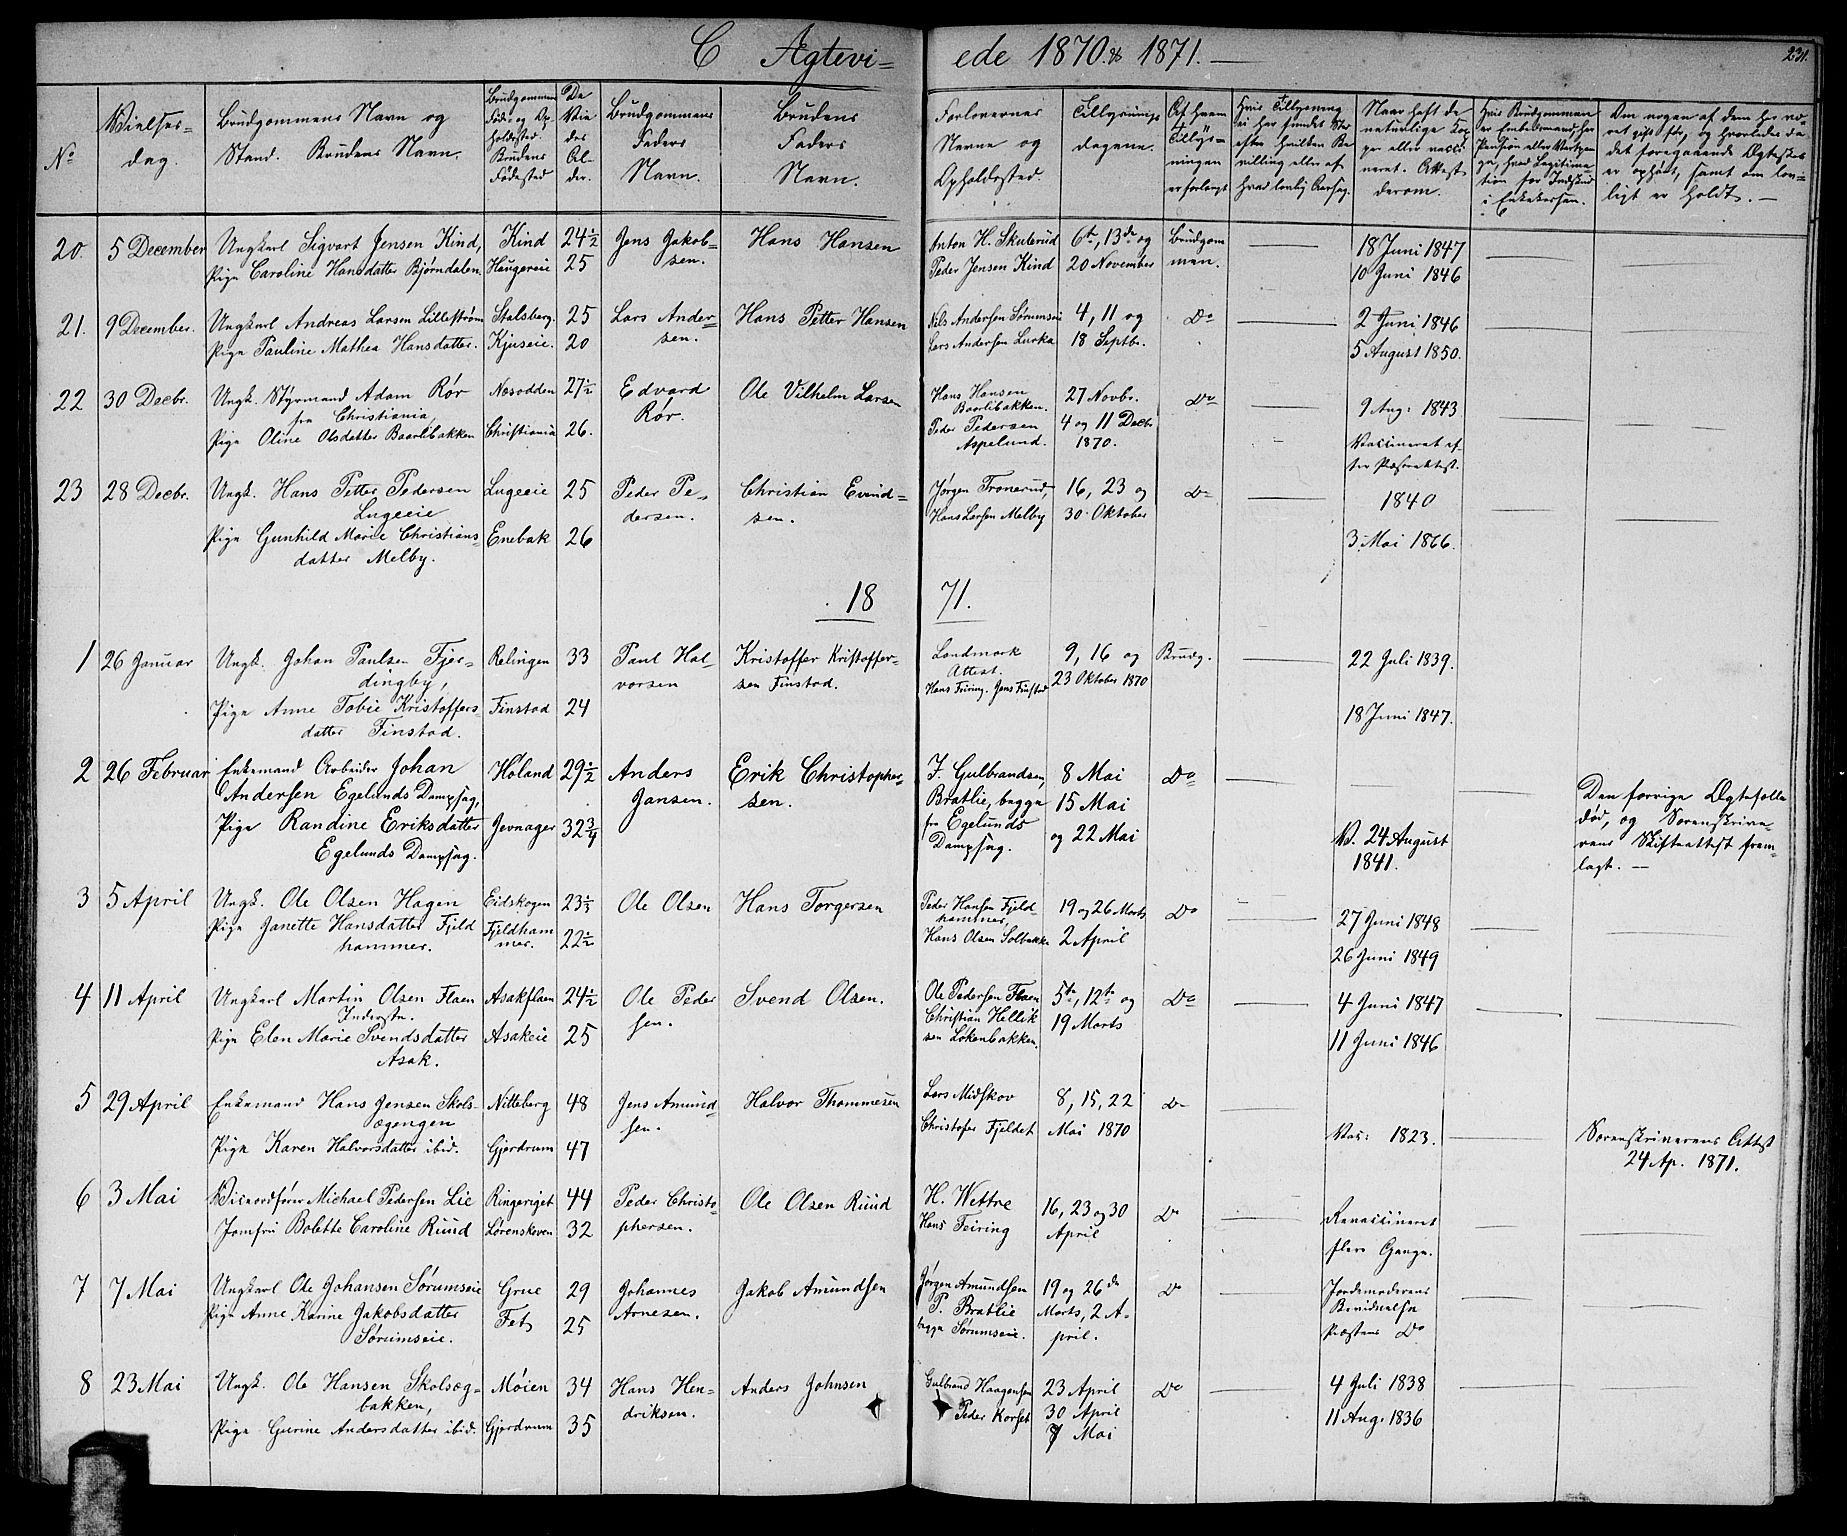 C Ægtevi= ede 1870 & 1871. —
231.
No
Vielses=
dag.
Brudgommens Navn og
Stand. Brudens Navn.
Brudgommens
Føde- og Op=
holdssted.
Brudens
Fødested
De
Vie
des
Al=
der.
Brudgommens
Faders
Navn.
Brudens
Faders
Navn.
Forlovernes
Navne og
Opholdssted.
Tillysnings
dagene.
Af hvem
Tillys=
ningen
er forlangt
Naar haft de
naturlige Kop
per eller vacci
neret. Attest
derom.
20. 5 December Ungkarl Sigvart Jensen Kind, Kind 24½ Jens Jakob= Hans Hansen Anton H. Skuterud 6te, 13de og Brudgom 18 Juni 1847
Pige Caroline Hansdatter Bjørndalen Haugereie 25 sen. Peder Jensen Kind 20 November men. 10 Juni 1846
21. 9 December. Ungkarl Andreas Larsen Lillestrøm Stalsberg. 25 Lars Ander= Hans Petter Hansen Nels Andersen Sørumseie 4, 11 og Do 2 Juni 1846
Pige Pauline Mathea Hansdatter. Kjuseie. 20 sen. Lars Andersen Lurka 18 Septbr. 5 August 1850.
22 30 Decbr. Ungk. Styrmand Adam Rør Nesodden 27½ Edvard Ole Vilhelm Larsen Hans Hansen 27 Novbr. Do 9 Aug: 1843
fra Christiania, Rør. Baarlibakken. 4 og 11 Decbr
Pige Oline Olsdatter Baarlibakken Christiania 26. Peder Pedersen 1870. Vaccineret ef=
Aspelund. ter Præsteattest.
23 28 Decbr. Ungk. Hans Petter Pedersen Lugeeie 25 Peder Pe= Christian Evend= Jørgen Tronerud, 16, 23 og Do 1840
Lugeeie dersen. sen. Hans Larsen Melby 30 Oktober
Pige Gunhild Marie Christians= Enebak 26 3 Mai 1866.
datter Melby.
18 71.
1 26 Januar Ungk. Johan Paulsen Fjer= Relingen 33 Paul Hal= Kristoffer Kristoffer= Landmark 9, 16 og Brudg. 22 Juli 1839.
dingby, vorsen sen Finstad. Attest. 23 Oktober 1870
Hans Feiring. Jens Finstad
Pige Anne Tobie Kristoffers= Finstad 24 18 Juni 1847.
datter Finstad.
2 26 Februar Enkemand Arbeider Johan Høland 29½ Anders Erik Christopher= J. Gulbrandsen, 8 Mai Do
Andersen Egelunds Dampsag, Jansen. sen. Bratlie, begge 15 Mai Den forrige Ægtefælle
Pige Randine Eriksdatter Jevnager 32¾ fra Egelunds og 22 Mai V. 24 August død, og Sorenskrive=
Egelunds Dampsag. Dampsag. 1841. rens Skifteattest frem=
lagt. —
3 5 April Ungk. Ole Olsen Hagen Eidskogen 23⅓ Ole Olsen Hans Torgersen Peder Hansen Fjeld 19 og 26 Marts Do 27 Juni 1848
Pige Janette Hansdatter Fjeld Fjeldham 22½ hammer, 2 April
hammer. mer. Hans Olsen Solbakken 26 Juni 1849
4 11 April Ungkarl Martin Olsen Flaen Asakflaen 24½ Ole Peder Svend Olsen. Ole Pedersen Flaen 5te, 12te og Do 4 Juni 1847
Inderste. sen. Christian Hellik 19 Marts
Pige Elen Marie Svendsdatter Asakeie 25 sen Løkenbakken. 11 Juni 1846
Asak.
5 29 April Enkemand Hans Jensen Skols= Nitteberg 48 Jens Amund= Halvor Thommesen Lars Midskov 8, 15, 22 Do
ægengen sen. Christofer Fjeldet Mai 1870
Pige Karen Halvorsdatter ibid. Gjerdrum 47 Vac: 1823. Sorenskriverens Attest
24 Ap. 1871.
6 3 Mai Michael Pedersen Lie Ringeriget 44 Peder Christo= Ole Olsen Ruud H. Wettre 16, 23 og 30 Do Revaccineret
Jomfru Bolette Caroline Ruud Lørenskoven 32 phersen. Hans Feiring April flere Gange.
7 7 Mai Ungkarl Ole Johansen Sørumseie Grue 29 Johannes Jakob Amundsen Jørgen Amundsen 19 og 26de Do Jordemoderens
Pige Anne Karine Jakobsdatter Fet 25 Arnesen. P. Bratlie Marts, 2 A= Bevidnelse
Sørumseie. begge Sørumseie. pril. Præstens Do
8 23 Mai Ungk. Ole Hansen Skolseg= Møien 34 Hans Hen= Anders Johnsen Gulbrand Haagensen 23 April Do 4 Juli 1838
bakken, driksen. Peder Korset 30 April
Pige Gurine Andersdatter ibid. Gjerdrum 35 7 Mai 11 Aug. 1836